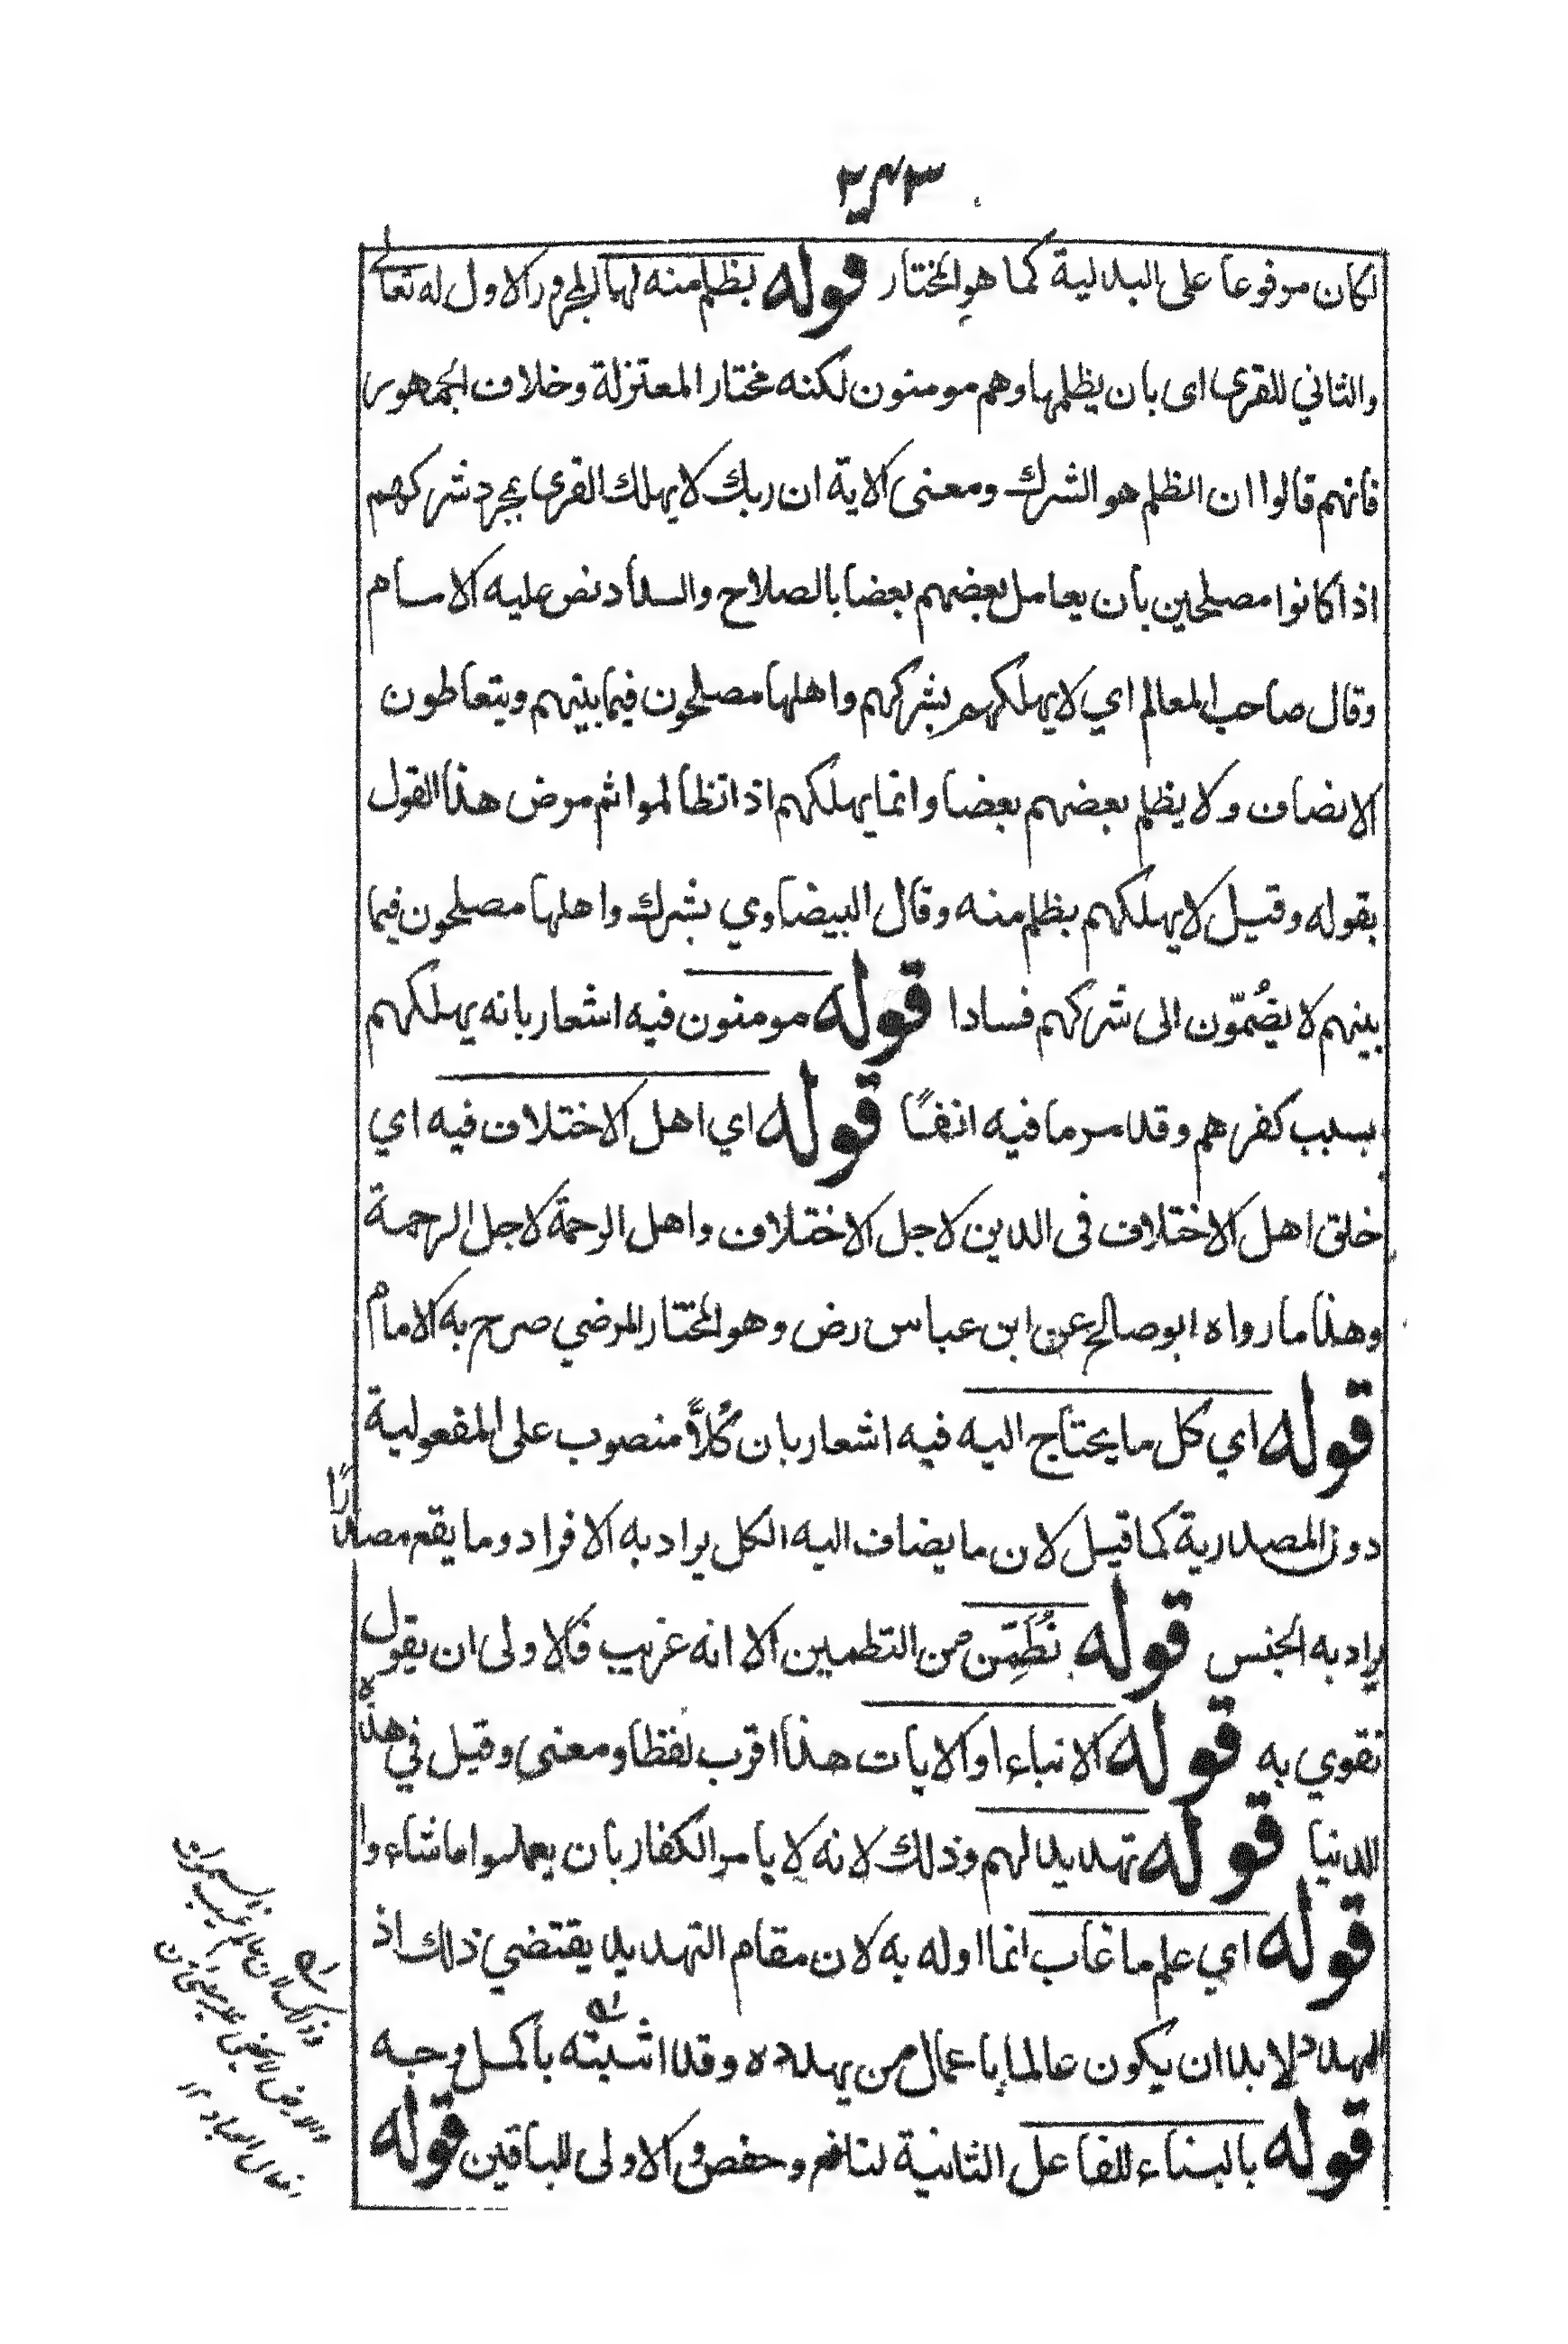 ٢٤٣
لكان مرفوعا على البدلية كما هو المختار قوله بظلم منه لها المجرور الاول له تعالى
والثاني للقرى اى بان يظلمها وهم مومنون لكنه مختار المعتزلة وخلاف الجمهور
فانهم قالوا ان الظلم هو الشرك ومعنى الاية ان ربك لا يهلك القرى بمجرد شركهم
اذا كانوا مصلحين بأن يعامل بعضهم بعضا بالصلاح والسداد نص عليه الامام
وقال صاحب المعالم اي لا يهلكهم بشركهم واهلها مصلحون فيما بينهم ويتعاطون
الانصاف ولا يظلم بعضهم بعضا وانما يهلكهم اذا تظالموا ثم مرض هذا القول
بقوله وقيل لا يهلكهم بظلم منه وقال البيضاوي بشرك واهلها مصلحون فيما
بينهم لا يضُمّون الى شركهم فسادا قوله مومنون فيه اشعار بانه يهلكهم
بسبب كفرهم وقد مر ما فيه انفًا قوله اي اهل الاختلاف فيه اي
خلق اهل الاختلاف فى الدين لاجل الاختلاف واهل الرحمة لاجل الرحمة
وهذا ما رواه ابو صالح عن ابن عباس رض وهو المختار المرضي صرح به الامام
قوله اي كل ما يحتاج اليه فيه اشعار بان كُلاًّ منصوب على المفعولية
دون المصدرية كما قيل لان ما يضاف اليه الكل يراد به الافراد وما يقع مصدرًا
يراد به الجنس قوله نُطَمِّن من التطمين الا انه غريب فالاولى ان يقول
نقوي به قوله الانباء او الايات هذا اقرب لفظا ومعنى وقيل في هذه
الدنيا قوله تهديد لهم وذلك لانه لا يامر الكفار بان يعملوا ما شاءوا
قوله اي علم ما غاب انما اوله به لان مقام التهديد يقتضي ذلك اذ
المهدد لابد ان يكون عالما باعمال من يهدده وقد اثبته بأكمل وجه
قوله بالبناء للفاعل الثانية لنافع وحفص والاولى للباقين قوله